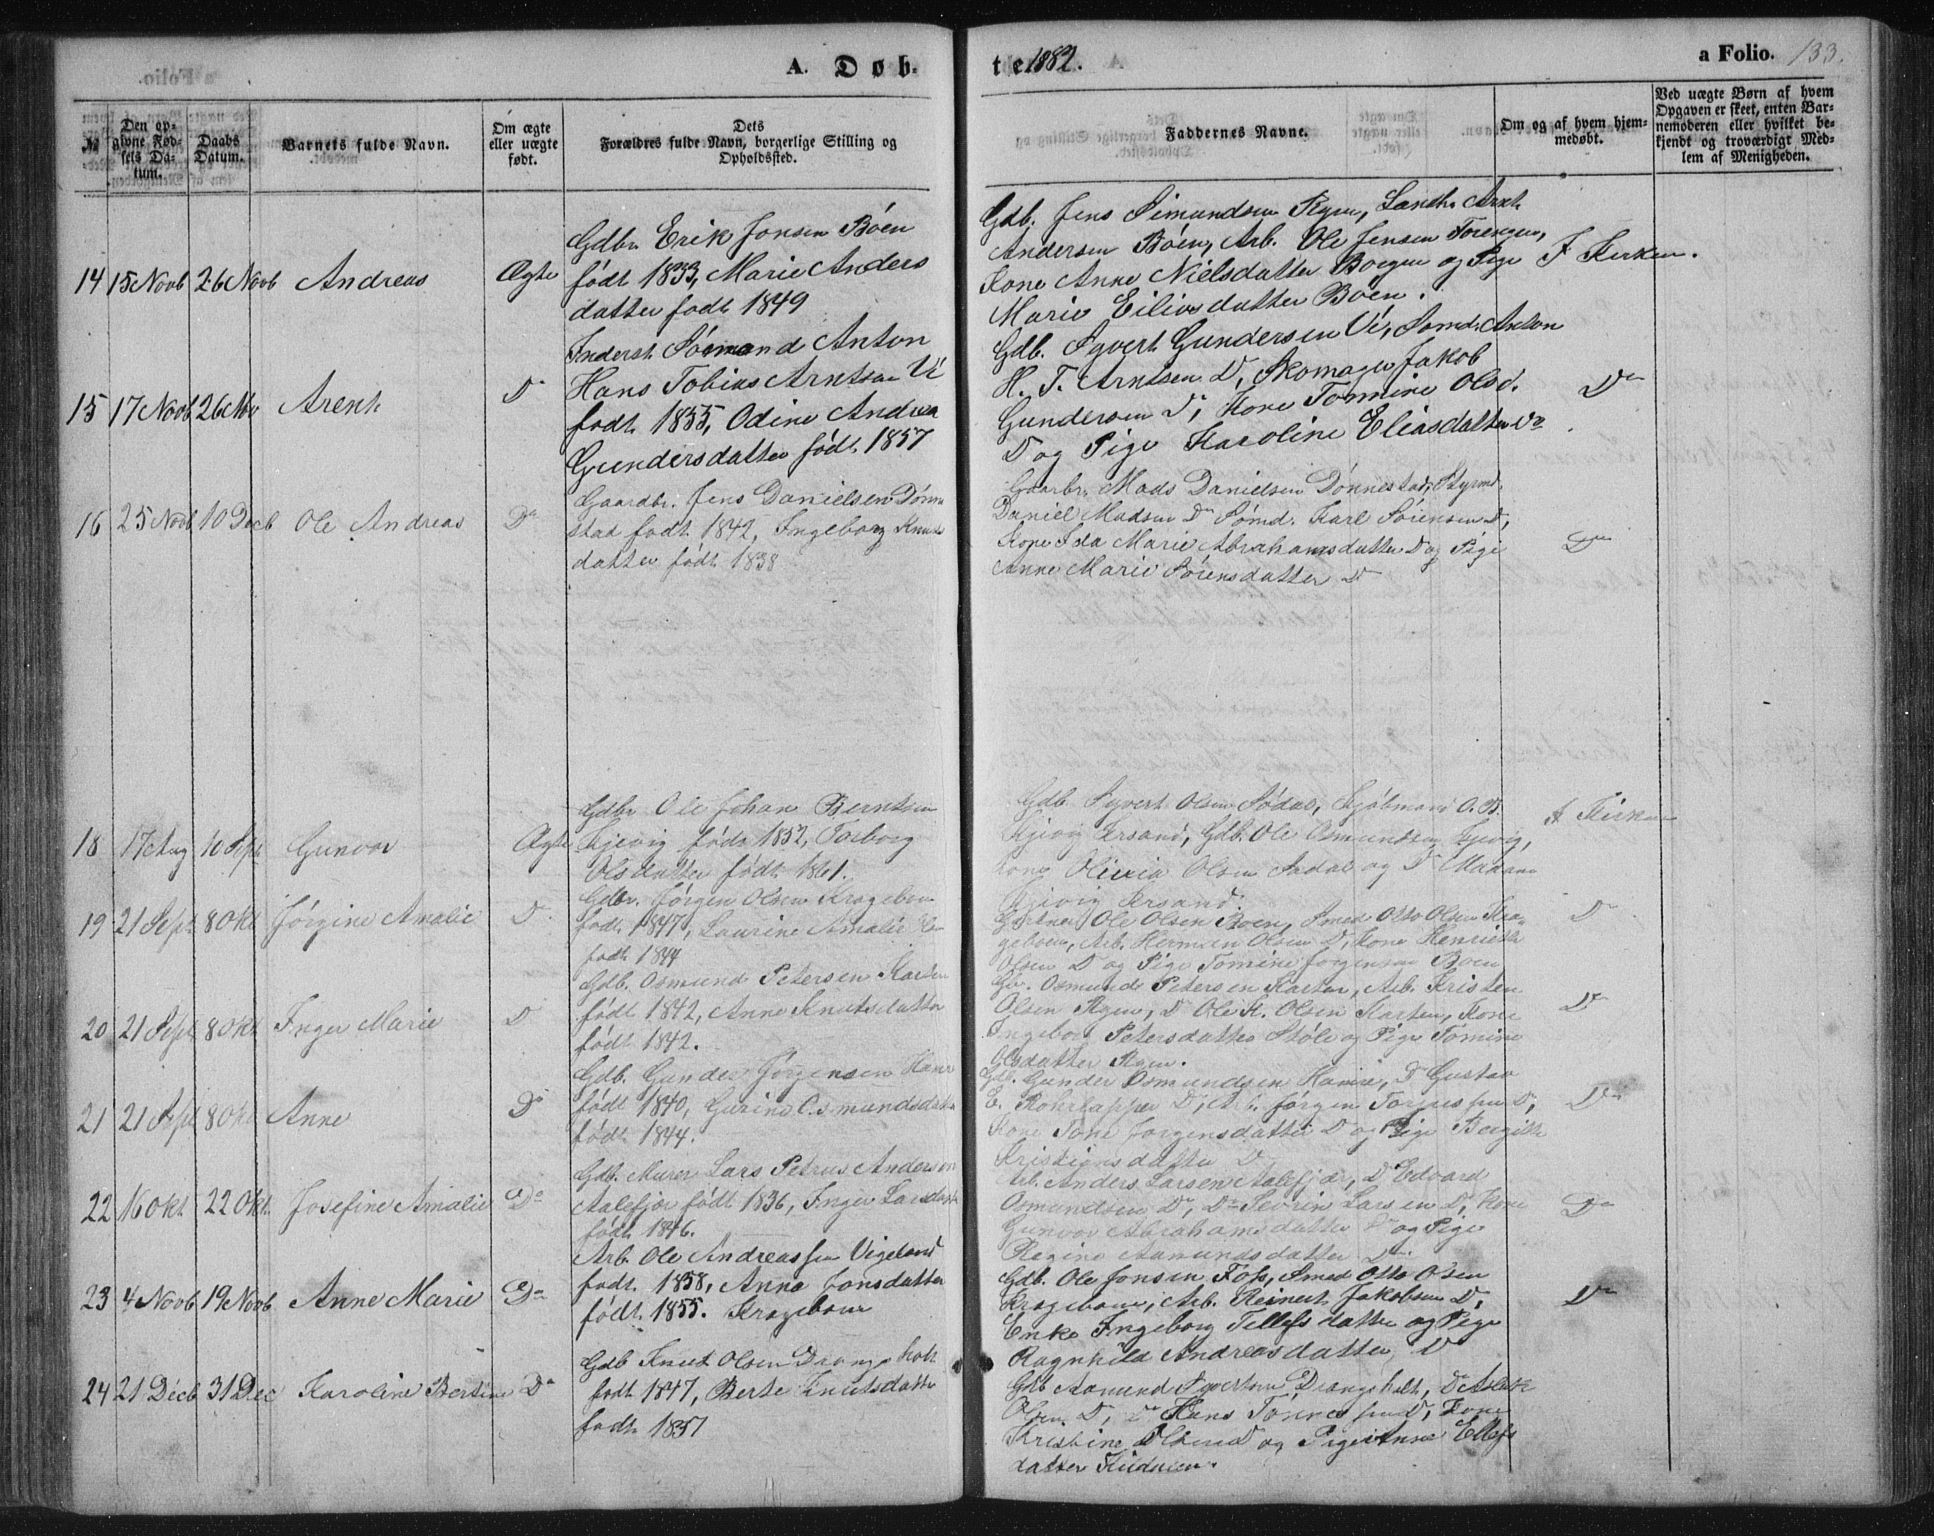 A. Døb-
te 1882.
a Folio. 133.
№
Den op-
givne Fød-
sels Da-
tum.
Daabs
Datum.
Barnets fulde Navn.
Om ægte
eller uægte
født.
Dets
Forældres fulde Navn, borgerlige Stilling og
Opholdssted.
Faddernes Navne.
Om og af hvem hjem-
medøbt.
Ved uægte Børn af hvem
Opgaven er skeet, enten Bar-
nemoderen eller hvilket be-
kjendt og troværdigt Med-
lem af Menigheden.
14 15 Novb 26 Novb Andreas Ægte
Gdbr Erik Jonsen Bóen
født 1833, Marie Anders
datter født 1849
Gdb. Jens Simundsen Rgen,
Andersen Bóen, Arb. Ole Jensen
Kone Anne Nielsdatter Boegen og Pige
Marie Eilivsdatter Bóen.
I Kirken.
15 17 Novb 26 Nov Arent Do
Inderst Sómand Anton
Hans Tobias Arntsen Vé
født 1855, Odine Andrea
Gundersdatter født 1857
Gdb. Syvert Gundersen Vé, Sømd. Anton
H. T. Arntsen Do, Skomager Jakob
Gundersen Do, Kone Tomine Olsd.
Do og Pige Karoline Eliasdatter Do
Do
16 25 Novb 10 Decb Ole Andreas Do
Gaardbr. Jens Danielsen Dónne
stad født 1842, Ingeborg Knuds
datter født 1838
Gaarbr. Mads Danielsen Dónnestad, Styrmd.
Daniel Madsen Do Sómd. Karl Sórensen Do,
Kone Ida Marie Abrahamsdatter Do og Pige
Anne Marie Sórensdatter Do
Do
18 17 Aug 10 Sept Gunvor Ægte
Gdbr Ole Johan Berntsen
Kjevig født 1852, Torborg
Olsdatter født 1861.
Gdb. Syvert Olsen Sódal, Kjóbmand O. B.
Kjevig Krsand, Gdb. Ole Osmundsen Kjevig,
Kone Olivia Olsen Sódal og Do
Kjevig Krsand.
I Kirken
19 21 Sept 8 Okt Jórgine Amalie Do
Gdbr. Jórgen Olsen Krageboen
født 1847, Laurine Amalie
født 1844
Ole Olsen Boen, Smed Otto Olsen Kra-
geboen, Arb. Herman Olsen Do, Kone Henriette
Olsen Do og Pige Tomine Jorgensen Boen
Do
20 21 Sept 8 Okt Inger Marie Do
Gdb. Osmund Petersen Karten
født 1842, Anne Knutsdatter
født 1842.
Gdr. Osmund Petersen Karten, Arb. Kristen
Olsen Rgen, Do Ole K. Olsen Karten, Kone
Ingeborg Petersdatter Stóle og Pige Tomine
Olsdatter Rgen.
Do
21 21 Sept 8 Okt Anne Do
Gdb. Gunder Jórgensen Hamre
født 1840, Gurine Osmundsdatter
født 1844.
Gdb. Gunder Osmundsen Hamre, Do Gustav
E. Do, Arb. Jórgen Torjussen Do,
Kone Tone Jorgensdatter Do og Pige Bergitte
Kristiansdatter Do
Do
22 16 Okt 22 Okt Josefine Amalie Do
Gdb. Murer Lars Petrus Andersen
Aalefjær født 1836, Inger Larsdatter
født 1846.
Arb. Anders Larsen Aalefjær, Do Edvard
Osmundsen Do, Do Severin Larsen Do, Kone
Gunvor Abrahamsdatter Do og Pige
Regine Aamundsdatter Do.
Do
23 4 Novb 19 Novb Anne Marie Do
Arb. Ole Andreassen Vigeland
født 1858, Anne Jonsdatter
født 1855. Krageboen
Gdb. Ole Jonsen Foss, Smed Otto Olsen
Krageboen, Arb. Reinert Jakobsen Do,
Enke Ingeborg Tellefsdatter og Pige
Ragnhild Andreasdatter Do
Do
24 21 Decb 31 Dec Karoline Bertine Do
Gdb Knut Olsen Drangsholt
født 1847, Berte Knutsdatter
født 1857
Gdb Aamund Syvertsen Drangsholt, Do Aslak
Olsen Do, Do Hans Tónnessen Do, Kone
Kristine Olsen Do og Pige Anne Ellefs
datter